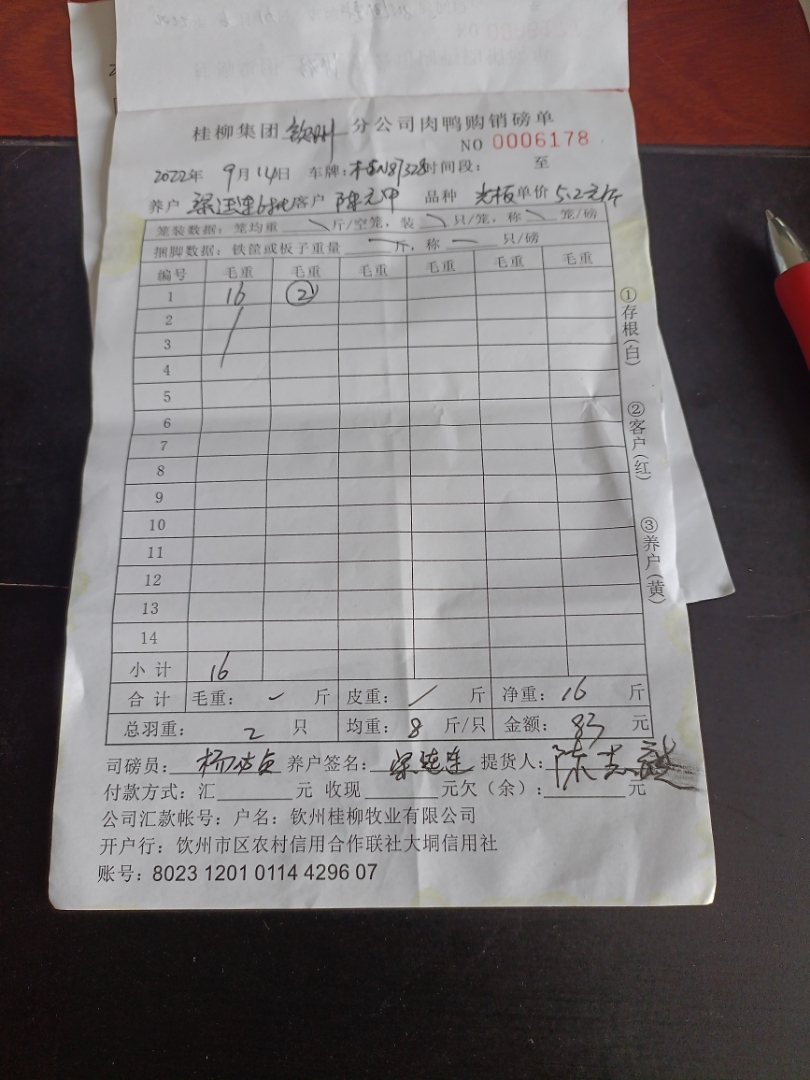 桂柳集团 钦州 分公司肉鸭购销磅单
NO 0006178
2022年 9月14日 车牌: 时间段: 至
养户 客户 陈元甲 品种 光板 单价 5.2元/斤
笼装数据: 笼均重 斤/空笼, 装 只/笼, 称 笼/磅
捆脚数据: 铁筐或板子重量 斤, 称 只/磅
编号 毛重 毛重 毛重 毛重 毛重 毛重
1 16 ②
2
3
4
5
6
7
8
9
10
11
12
13
14
小计 16
合计 毛重: 斤 皮重: 斤 净重: 16 斤
总羽重: 2 只 均重: 8 斤/只 金额: 83 元
司磅员: 养户签名: 梁连连 提货人:
付款方式: 汇 元 收现 元欠(余): 元
公司汇款帐号: 户名: 钦州桂柳牧业有限公司
开户行: 钦州市区农村信用合作联社大垌信用社
账号: 8023 1201 0114 4296 07
①存根(白)
②客户(红)
③养户(黄)